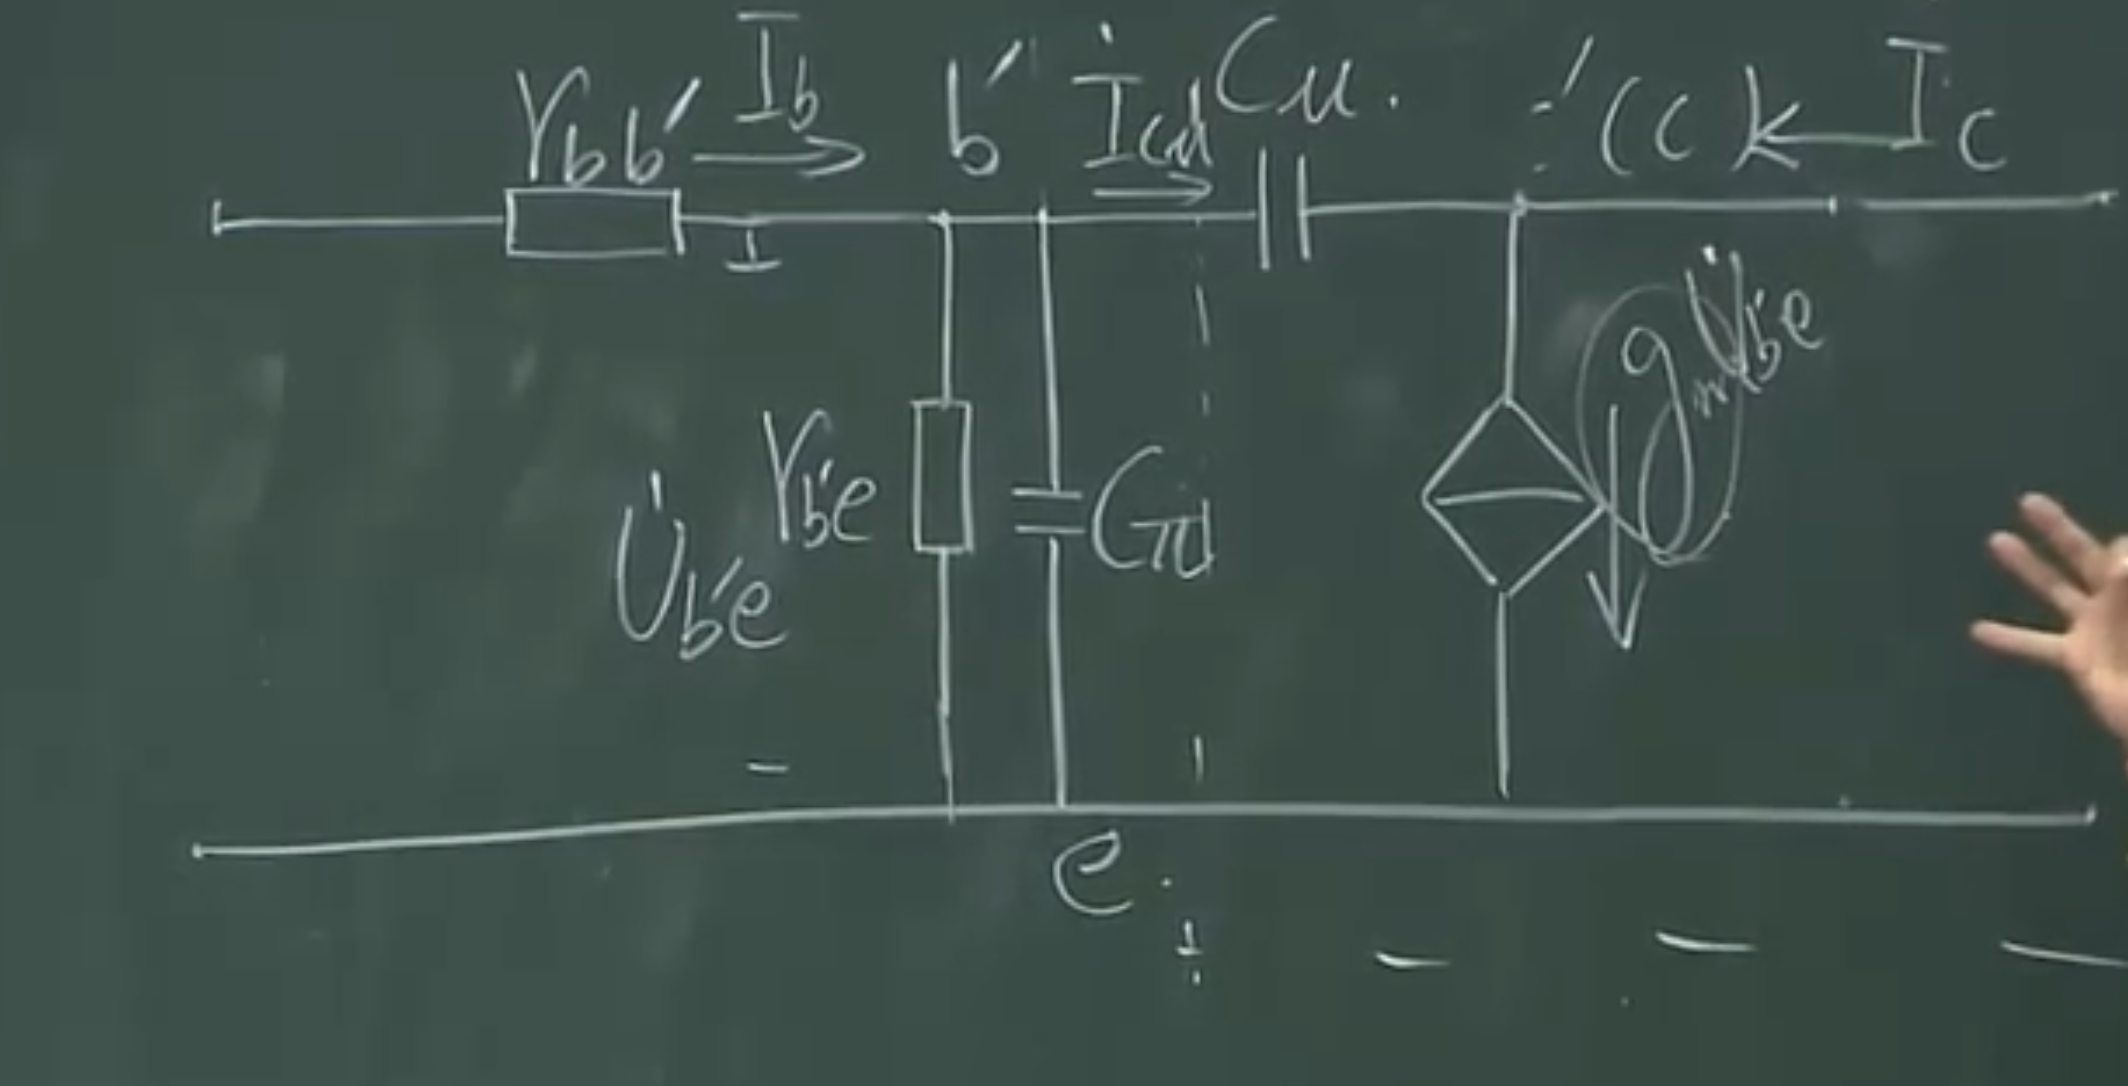 rbb' Ib b' İcμ Cμ. (c) Ic
gmU̇b'e
rb'e Cπ
U̇b'e
e